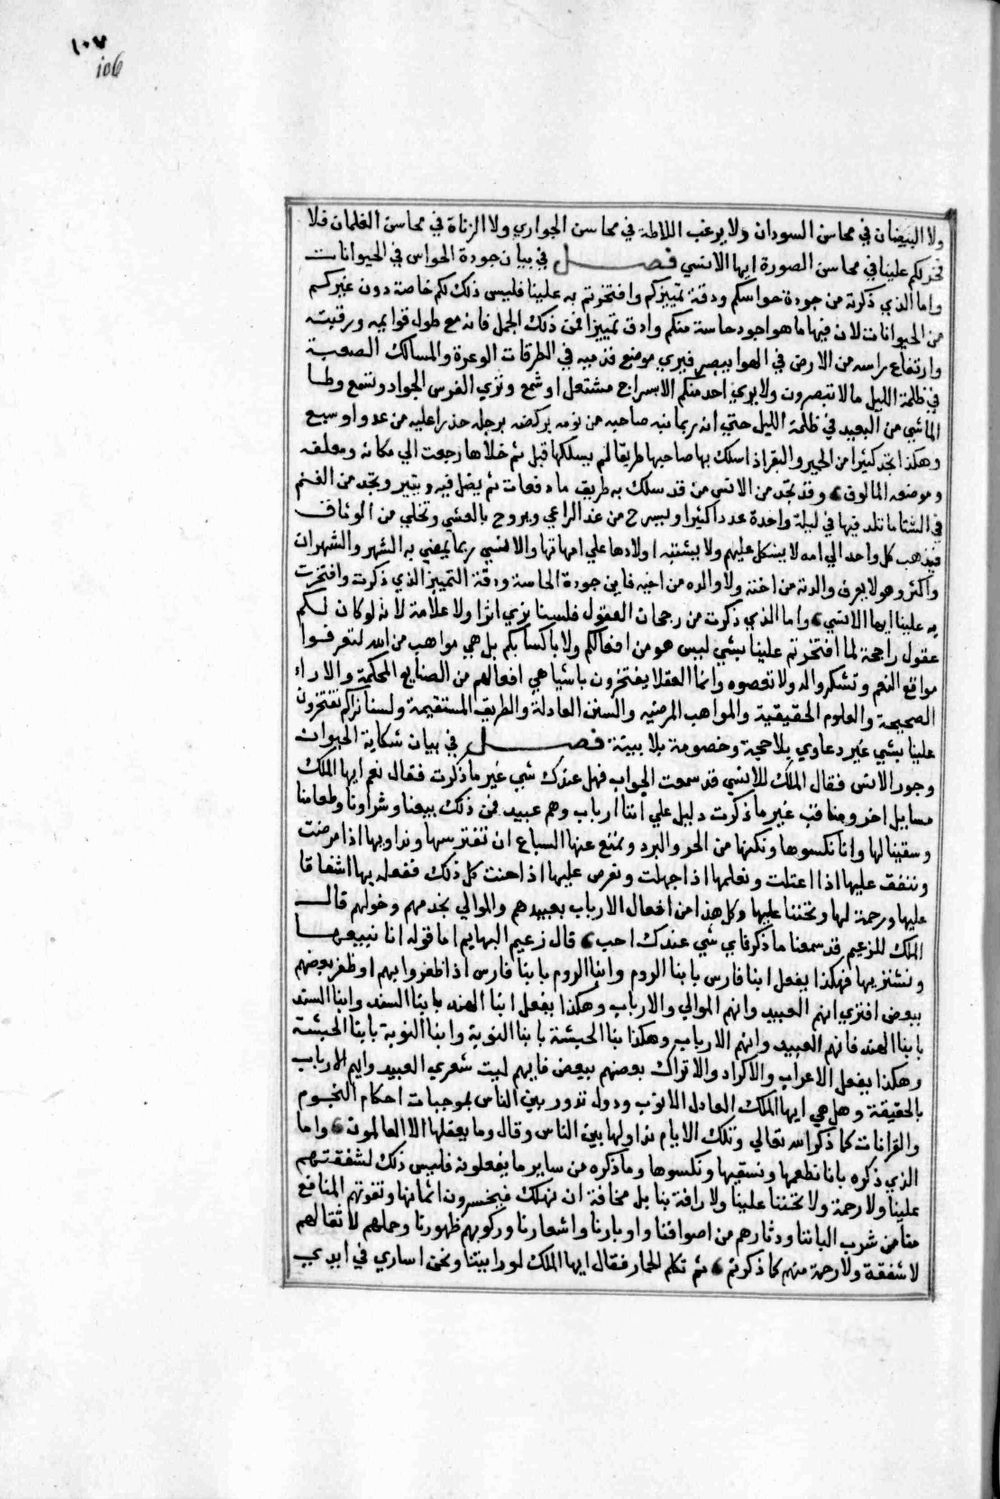 ١٠٧
106
ولا البيضان في محاسن السودان ولا يرغب اللاطة في محاسن الجواري ولا الزناة في محاسن الغلمان فلا
فخر لكم علينا في محاسن الصورة ايها الانسي فصل في بيان جودة الحواس في الحيوانات
واما الذي ذكرته من جودة حواسكم ودقة تمييزكم وافتخرتم به علينا فليس ذلك لكم خاصة دون غيركم
من الحيوانات لان فيها ما هو اجود حاسة منكم وادق تمييزا فمن ذلك الجمل فانه مع طول قوايمه ورقبته
وارتفاع راسه من الارض في الهوا يبصر فيري موضع قدميه في الطرقات الوعرة والمسالك الصعبة
في ظلمة الليل مالا تبصرون ولا يري احد منكم الا بسراج مشتعل او شمع ونري الفرس الجواد وتسمع وطا
الماشي من البعيد في ظلمة الليل حتي انه ربما نبه صاحبه من نومه بركضه برجله حذرا عليه من عدو او سبع
وهكذا نجد كثيرا من الحمير والبقر اذا سلك بها صاحبها طريقا لم يسلكها قبل ثم خلاها رجعت الي مكانه ومعلفه
وموضعه المالوف وقد نجد من الانس من قد سلك به طريق ما دفعات ثم يضل فيه ويتير ونجد من الغنم
في الشتا ما تلد فيها في ليلة واحدة عددا كثيرا ويسرح من غد الراعي ويروح بالعشي وتخلي من الوثاق
فيذهب كل واحد الي امه لا يشكل عليهم ولا يشتبه اولادها علي امهاتها والانسي ربما يمضي به الشهر والشهران
واكثر وهو لا يعرف والدته من اخته ولا والده من اخيه فاين جودة الحاسة ودقة التمييز الذي ذكرت وافتخرت
به علينا ايها الانسي واما الذي ذكرت من رجحان العقول فلسنا نري اثرا ولا علامة لانه لو كان لكم
عقول راجحة لما افتخرتم علينا بشي ليس هو من افعالكم ولا باكتسابكم بل هي مواهب من الله لتعرفوا
مواقع النعم وتشكروا له ولا تعصوه وانما العقلا يفتخرون باشيا هي افعالهم من الصنايع المحكمة والاراء
الصحيحة والعلوم الحقيقية والمواهب المرضيه والسنن العادلة والطريق المستقيمة ولسنا نراكم تفتخرون
علينا بشي غير دعاوي بلا حجة وخصومة بلا بينة فصل في بيان شكاية الحيوان
وجور الانس فقال الملك للانسي قد سمعت الجواب فهل عندك شي غير ما ذكرت فقال نعم ايها الملك
مسايل اخر ومناقب غير ما ذكرت دليل علي اننا ارباب وهم عبيد فمن ذلك بيعنا وشراونا وطعامنا
وسقينا لها وانا نكسوها ونكنها من الحر والبرد ونمنع عنها السباع ان تفترسها ونداويها اذا مرضت
وننفق عليها اذا اعتلت ونعلمها اذا جهلت ونعرض عليها اذا جنت كل ذلك نفعله بها اشفاقا
عليها ورحمة لها وتحننا عليها وكل هذا من افعال الارباب بعبيدهم والموالي بخدمهم وخولهم قال
الملك للزعيم قد سمعنا ما ذكر فاي شي عندك اجب قال زعيم البهايم اما قوله انا نبيعها
ونشتريها فهكذا يفعل ابنا فارس بابنا الروم وابنا الروم بابنا فارس اذا ظفروا بهم او ظفر بعضهم
ببعض افتري ايهم العبيد وايهم الموالي والارباب وهكذا يفعل ابنا الهند بابنا السند وابنا السند
بابنا الهند فايهم العبيد وايهم الارباب وهكذا بنا الحبشة بابنا النوبة وابنا النوبة بابنا الحبشة
وهكذا يفعل الاعراب والاكراد والاتراك بعضهم ببعض فايهم ليت شعري العبيد وايهم الارباب
بالحقيقة وهل هي ايها الملك العادل الا نوب ودول تدور بين الناس بموجبات احكام النجوم
والقرانات كما ذكر الله تعالي وتلك الايام نداولها بين الناس وقال وما يعقلها الا العالمون واما
الذي ذكره بانا نطعمها ونسقيها ونكسوها وما ذكره من ساير ما يفعلونه فليس ذلك لشفقتهم
علينا ولا رحمة ولا تحننا علينا ولا رافة بنا بل مخافة ان نهلك فيخسرون اثمانها وتفوتهم المنافع
منا من شرب الباننا ودثارهم من اصوافنا واوبارنا واشعارنا وركوبهم ظهورنا وحملهم لاثقالهم
لا شفقة ولا رحمة منهم كما ذكرتم ثم تكلم الحمار فقال ايها الملك لو رايتنا ونحن اساري في ايدي